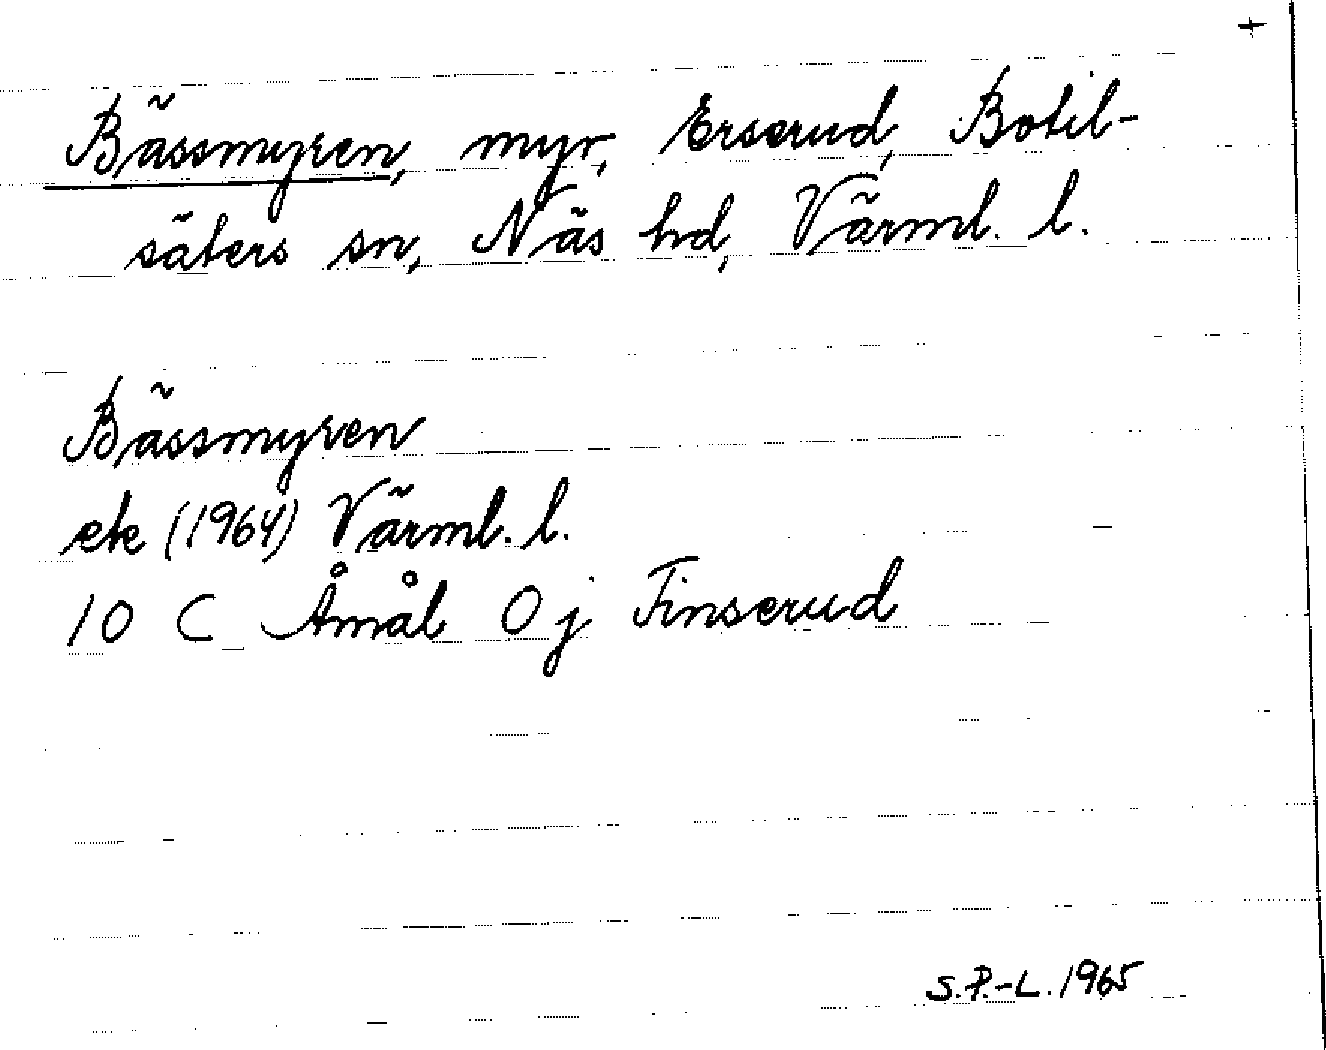 +
Bässmyren, myr, Erserud, Botil-
säters sn, Näs hd, Värml. l.
Bässmyren
ek (1964) Värml. l.
10 C Åmål 0 j Finserud
S.P.-L. 1965